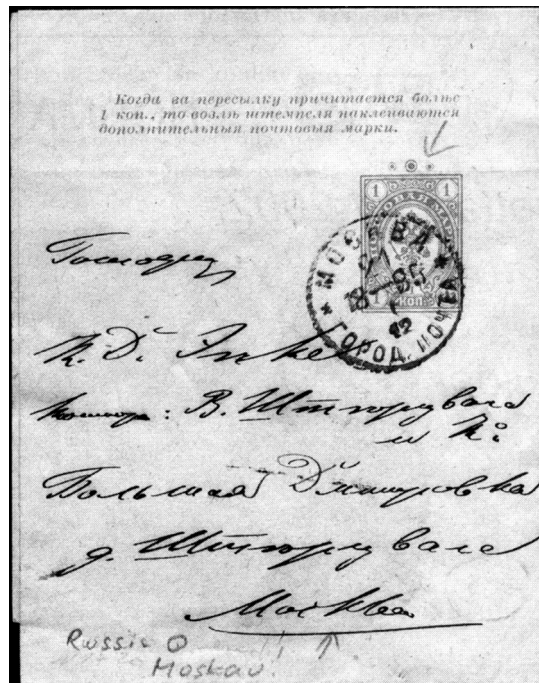 Когда за пересылку причитается болѣе
1 коп., то возлѣ штемпеля наклеиваются
дополнительныя почтовыя марки.
1 1
ПОЧТОВАЯ МАРКА
МОСКВА
1895
12
ГОРОД. ПОЧТА
1 КОП.
Господину
К. Д. Инке
контора: В. Штюрцваге
и Ко
Большая Дмитровка
д. Штюрцваге
Москва
Russia
Moskau